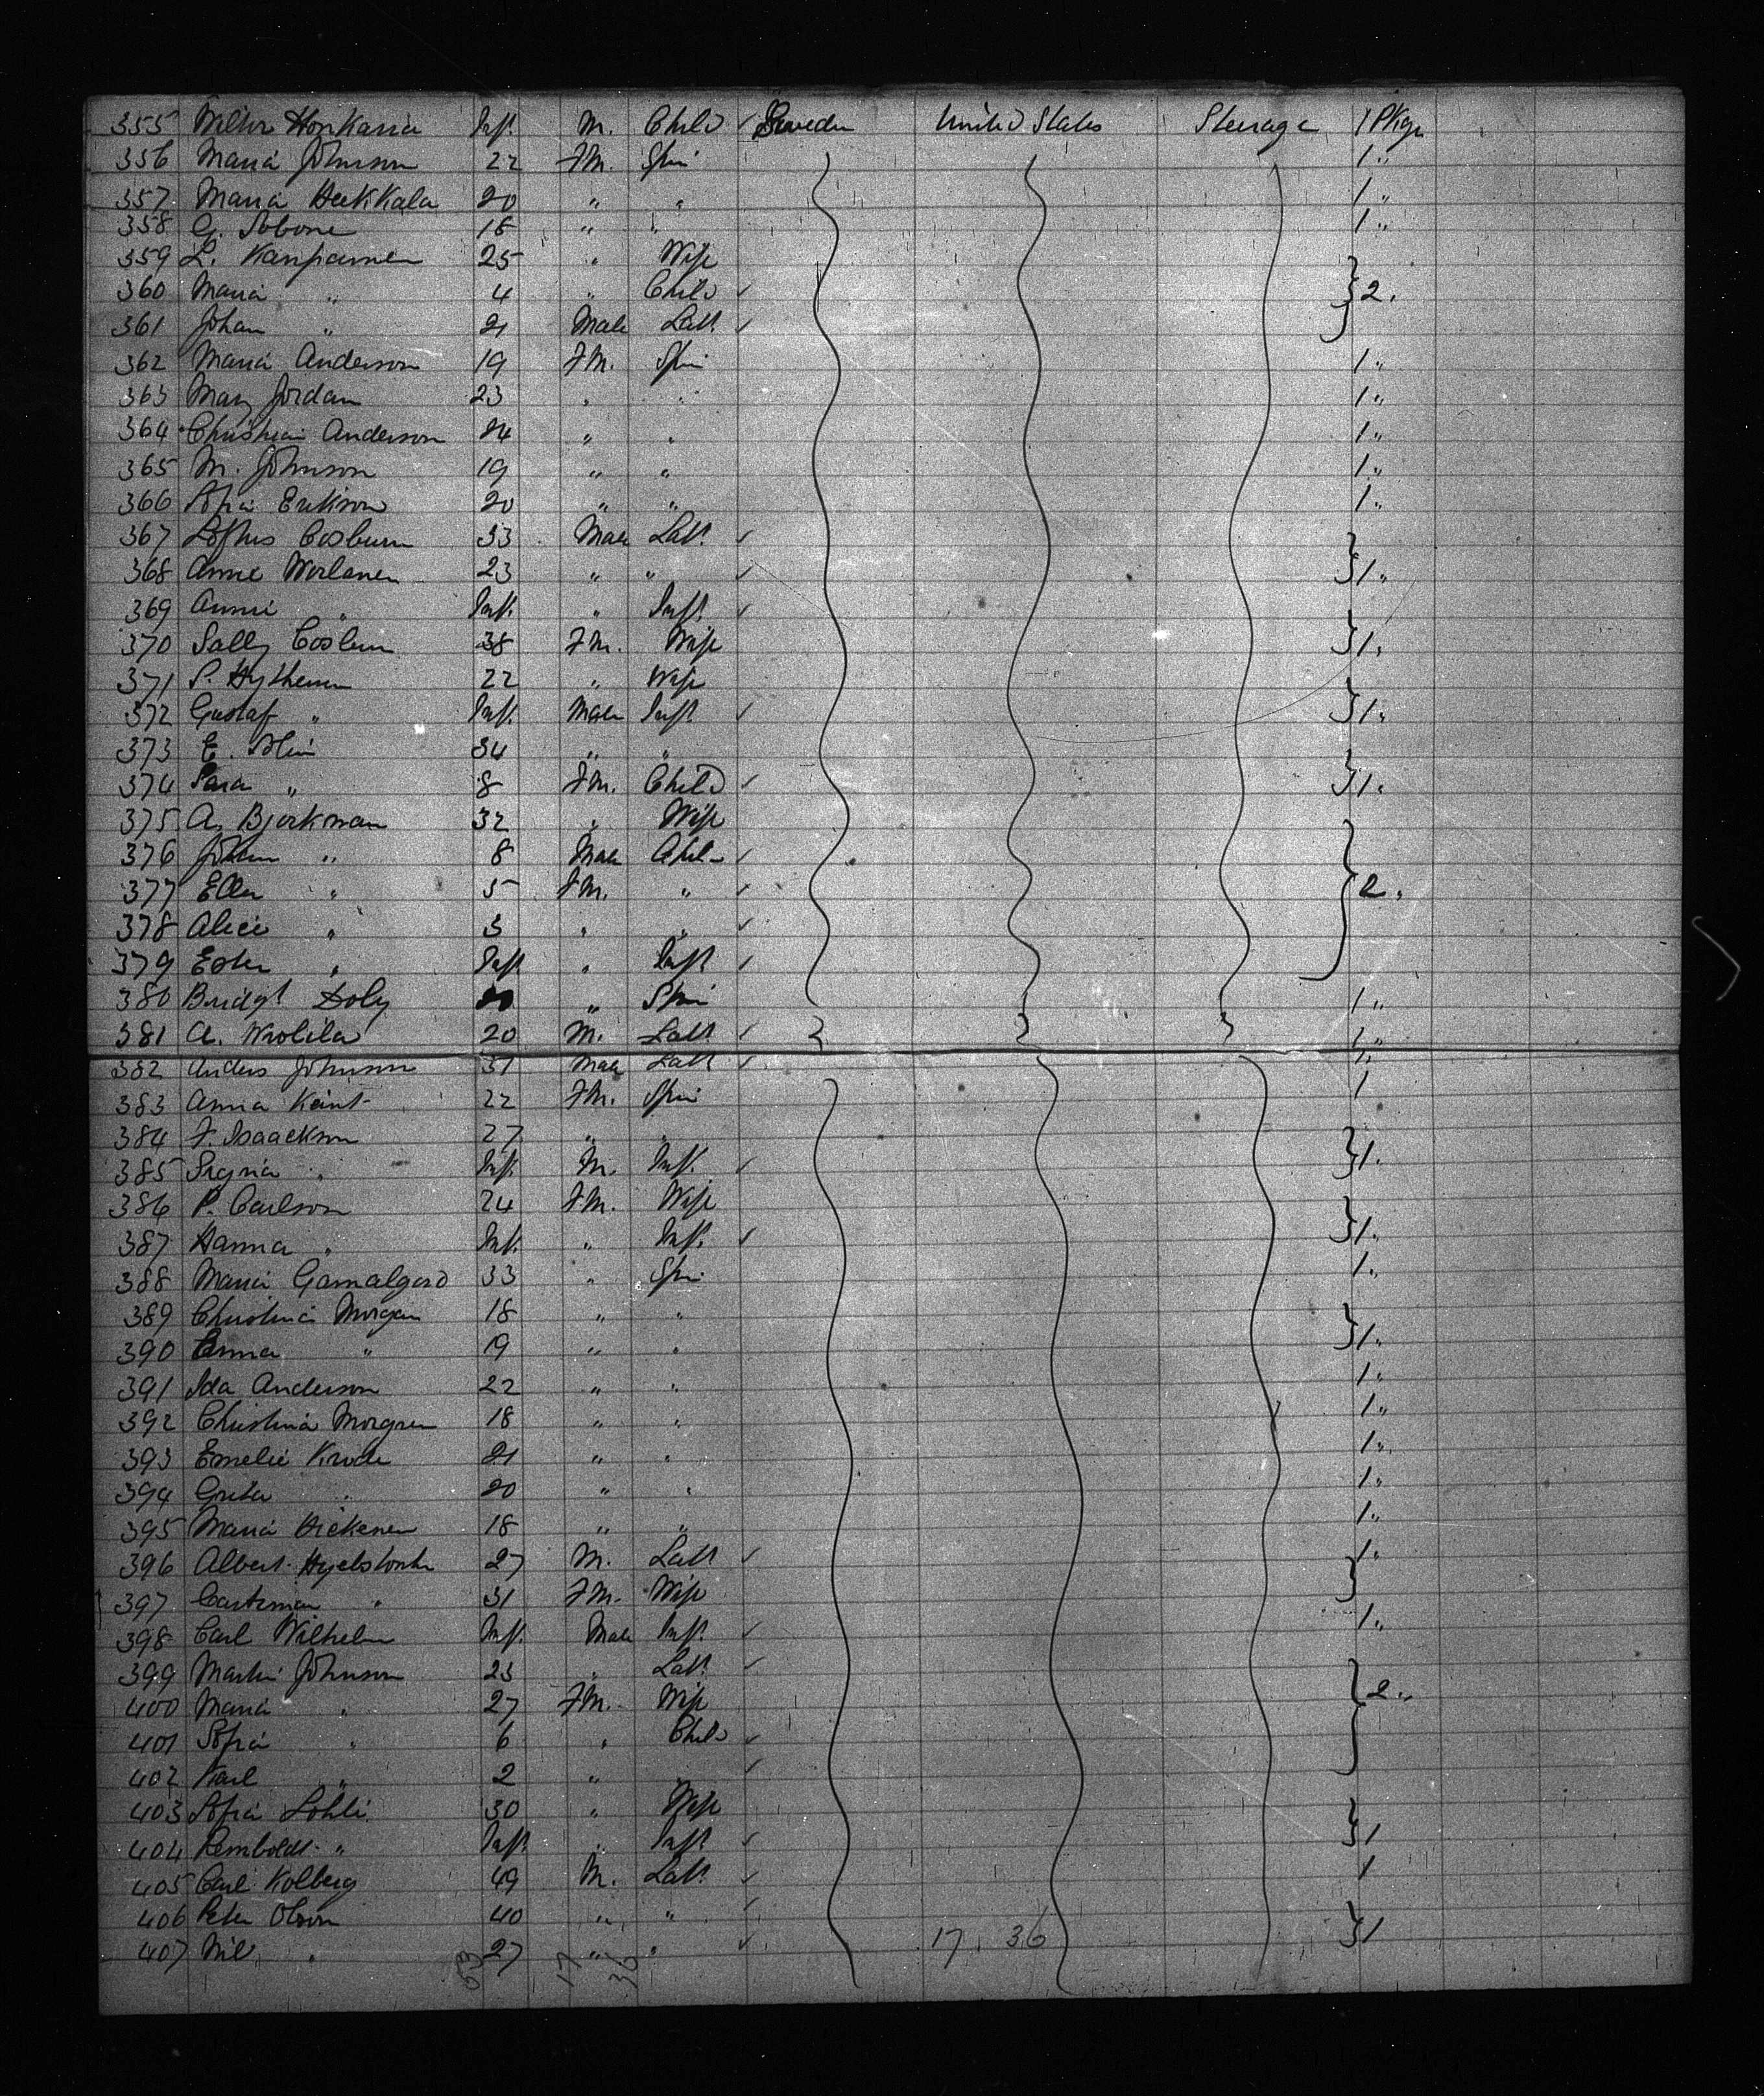 355 Honkania Inft. M. Child ✓ Sweden United States Steerage 1 Pkge
356 Maria Johnson 22 FM. Spin 1 "
357 Maria Heikkala 20 " " 1 "
358 G. 18 " " 1 "
359 L. 25 " Wife
360 Maria " 4 " Child ✓ } 2 "
361 Johan " 21 Male Lab. ✓
362 Maria Anderson 19 FM. Spin 1 "
363 Mary Jordan 23 " " 1 "
364 Christian Anderson 24 " " 1 "
365 M. Johnson 19 " " 1 "
366 Sofia Erikson 20 " " 1 "
367 Loftus Cosburn 33 Male Lab. ✓
368 Anne 23 " " ✓ } 1 "
369 Anni " Inft. " Inft. ✓
370 Sally 38 FM. Wife } 1 "
371 S. 22 " Wife
372 Gustaf " Inft. Male Inft. ✓ } 1 "
373 E. 34 " "
374 Sara " 8 FM. Child ✓ } 1 "
375 A. Bjorkman 32 " Wife
376 Johan " 8 Male Chil- ✓
377 Ellen " 5 FM. " ✓ } 2 "
378 Alice " 3 " " ✓
379 Ester " Inft. " Inft. ✓
380 Bridgt Doly " Spin 1 "
381 A. 20 M. Lab. ✓ 1 "
382 Anders Johnson 31 Male Lab. ✓ 1 "
383 Anna 22 FM. Spin 1
384 F. Isaackson 27 " "
385 " Inft. M. Inft. ✓ } 1 "
386 P. Carlson 24 FM. Wife
387 Hanna " Inft. " Inft. ✓ } 1 "
388 Maria Gamalgard 33 " Spin 1 "
389 Christina Morgan 18 " "
390 Anna " 19 " " } 1 "
391 Ida Anderson 22 " " 1 "
392 Christina Morgren 18 " " 1 "
393 Emelie 21 " " 1 "
394 Greta " 20 " " 1 "
395 Maria Hickenen 18 " " 1 "
396 Albert 27 M. Lab. ✓ 1 "
397 " 31 FM. Wife
398 Carl Wilhelm Inft. Male Inft. ✓ 1 "
399 Martin Johnson 23 " Lab. ✓
400 Maria " 27 FM. Wife } 2 "
401 Sofia " 6 " Child ✓
402 Karl " 2 " " ✓
403 Sofia 30 " Wife
404 " Inft. " Inft. ✓ } 1
405 Carl Kolberg 49 M. Lab. ✓ 1
406 Peter Olson 40 " " ✓
407 Nil " 27 " " ✓ 17 36 } 1
53 17 36